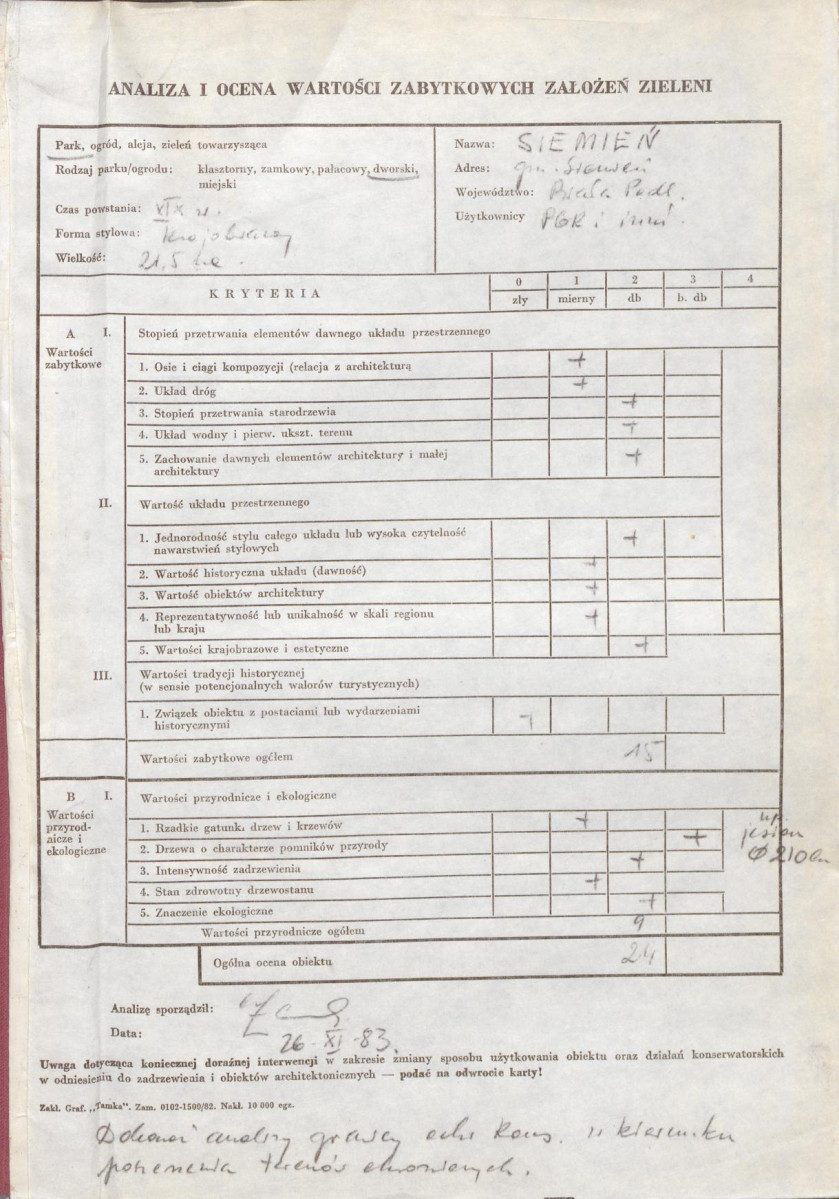 ANALIZA I OCENA WARTOŚCI ZABYTKOWYCH ZAŁOŻEŃ ZIELENI
Park, ogród, aleja, zieleń towarzysząca
Rodzaj parku/ogrodu: klasztorny, zamkowy, pałacowy, dworski,
miejski
Czas powstania: XIX w.
Forma stylowa: krajobrazowy
Wielkość: 21,5 ha.
Nazwa: SIEMIEŃ
Adres: gm. Siemień
Województwo: Biała Podl.
Użytkownicy PGR i inni.
KRYTERIA
0 1 2 3 4
zły mierny db b. db
A I. Stopień przetrwania elementów dawnego układu przestrzennego
Wartości
zabytkowe
1. Osie i ciągi kompozycji (relacja z architekturą +
2. Układ dróg +
3. Stopień przetrwania starodrzewia +
4. Układ wodny i pierw. ukszt. terenu +
5. Zachowanie dawnych elementów architektury i małej
architektury +
II. Wartość układu przestrzennego
1. Jednorodność stylu całego układu lub wysoka czytelność
nawarstwień stylowych +
2. Wartość historyczna układu (dawność) +
3. Wartość obiektów architektury +
4. Reprezentatywność lub unikalność w skali regionu
lub kraju +
5. Wartości krajobrazowe i estetyczne +
III. Wartości tradycji historycznej
(w sensie potencjonalnych walorów turystycznych)
1. Związek obiektu z postaciami lub wydarzeniami
historycznymi +
Wartości zabytkowe ogółem 15
B I. Wartości przyrodnicze i ekologiczne
Wartości
przyrod-
nicze i
ekologiczne
1. Rzadkie gatunki drzew i krzewów +
2. Drzewa o charakterze pomników przyrody +
np.
jesion
Ø 210 cm
3. Intensywność zadrzewienia +
4. Stan zdrowotny drzewostanu +
5. Znaczenie ekologiczne +
Wartości przyrodnicze ogółem 9
Ogólna ocena obiektu 24
Analizę sporządził:
Data: 26-XI-83.
Uwaga dotycząca koniecznej doraźnej interwencji w zakresie zmiany sposobu użytkowania obiektu oraz działań konserwatorskich
w odniesieniu do zadrzewienia i obiektów architektonicznych — podać na odwrocie karty!
Zakł. Graf. „Tamka". Zam. 0102-1500/82. Nakł. 10 000 egz.
Dokonać analizy granicy ochr. kons. w kierunku
poszerzenia terenów chronionych.